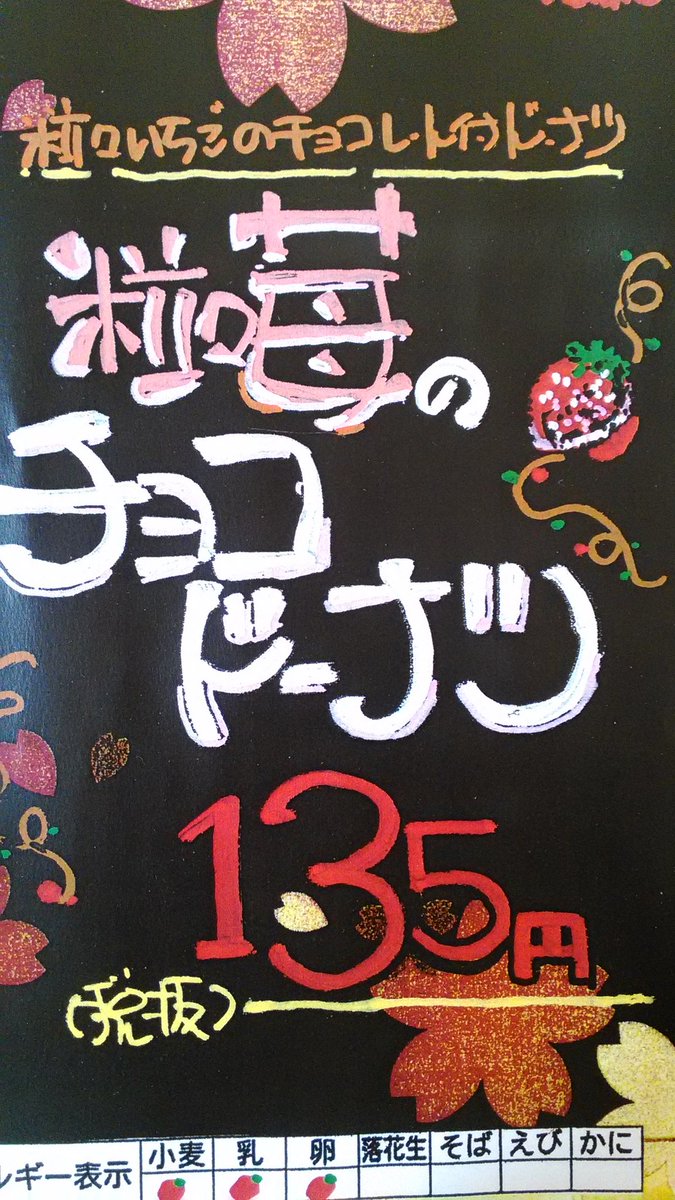 粒々いちごのチョコレート付ドーナツ
粒々苺の
チョコ
ドーナツ
135円
(税抜)
ルギー表示 小麦 乳 卵 落花生 そば えび かに